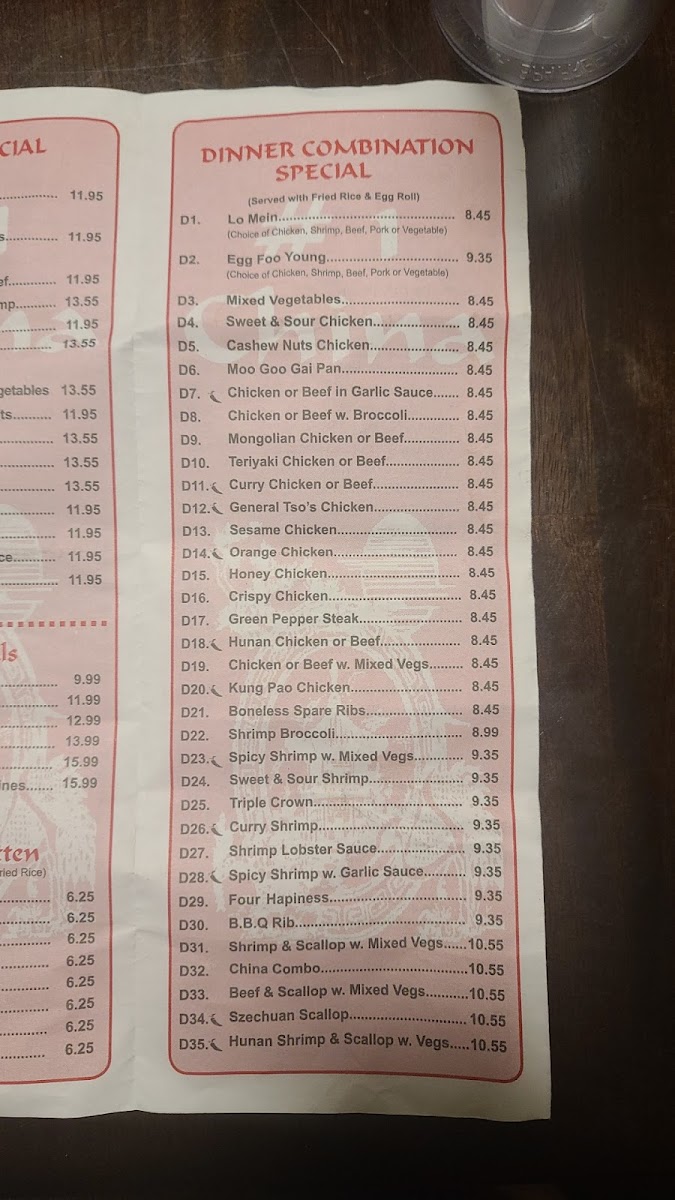 CIAL
11.95
s............ 11.95
ef............ 11.95
mp.......... 13.55
11.95
13.55
getables 13.55
ts.......... 11.95
13.55
13.55
13.55
11.95
11.95
ce........... 11.95
11.95
ls
9.99
11.99
12.99
13.99
15.99
ines....... 15.99
tten
ried Rice)
6.25
6.25
6.25
6.25
6.25
6.25
6.25
6.25
DINNER COMBINATION
SPECIAL
(Served with Fried Rice & Egg Roll)
D1. Lo Mein.......... 8.45
(Choice of Chicken, Shrimp, Beef, Pork or Vegetable)
D2. Egg Foo Young.......... 9.35
(Choice of Chicken, Shrimp, Beef, Pork or Vegetable)
D3. Mixed Vegetables.......... 8.45
D4. Sweet & Sour Chicken.......... 8.45
D5. Cashew Nuts Chicken.......... 8.45
D6. Moo Goo Gai Pan.......... 8.45
D7. Chicken or Beef in Garlic Sauce....... 8.45
D8. Chicken or Beef w. Broccoli.......... 8.45
D9. Mongolian Chicken or Beef.......... 8.45
D10. Teriyaki Chicken or Beef.......... 8.45
D11. Curry Chicken or Beef.......... 8.45
D12. General Tso's Chicken.......... 8.45
D13. Sesame Chicken.......... 8.45
D14. Orange Chicken.......... 8.45
D15. Honey Chicken.......... 8.45
D16. Crispy Chicken.......... 8.45
D17. Green Pepper Steak.......... 8.45
D18. Hunan Chicken or Beef.......... 8.45
D19. Chicken or Beef w. Mixed Vegs......... 8.45
D20. Kung Pao Chicken.......... 8.45
D21. Boneless Spare Ribs.......... 8.45
D22. Shrimp Broccoli.......... 8.99
D23. Spicy Shrimp w. Mixed Vegs.......... 9.35
D24. Sweet & Sour Shrimp.......... 9.35
D25. Triple Crown.......... 9.35
D26. Curry Shrimp.......... 9.35
D27. Shrimp Lobster Sauce.......... 9.35
D28. Spicy Shrimp w. Garlic Sauce.......... 9.35
D29. Four Hapiness.......... 9.35
D30. B.B.Q Rib.......... 9.35
D31. Shrimp & Scallop w. Mixed Vegs......10.55
D32. China Combo..........10.55
D33. Beef & Scallop w. Mixed Vegs..........10.55
D34. Szechuan Scallop..........10.55
D35. Hunan Shrimp & Scallop w. Vegs.....10.55